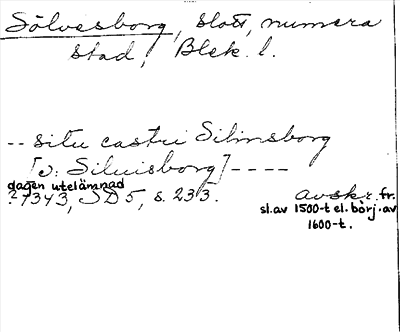 Sölvesborg, slott, numera
stad, Blek. l.
-- situ castri Silinsborg
[ɔ: Siluisborg] ----
dagen utelämnad
? 1343, SD 5, s. 235.
avskr. fr.
sl. av 1500-t el. börj. av
1600-t.